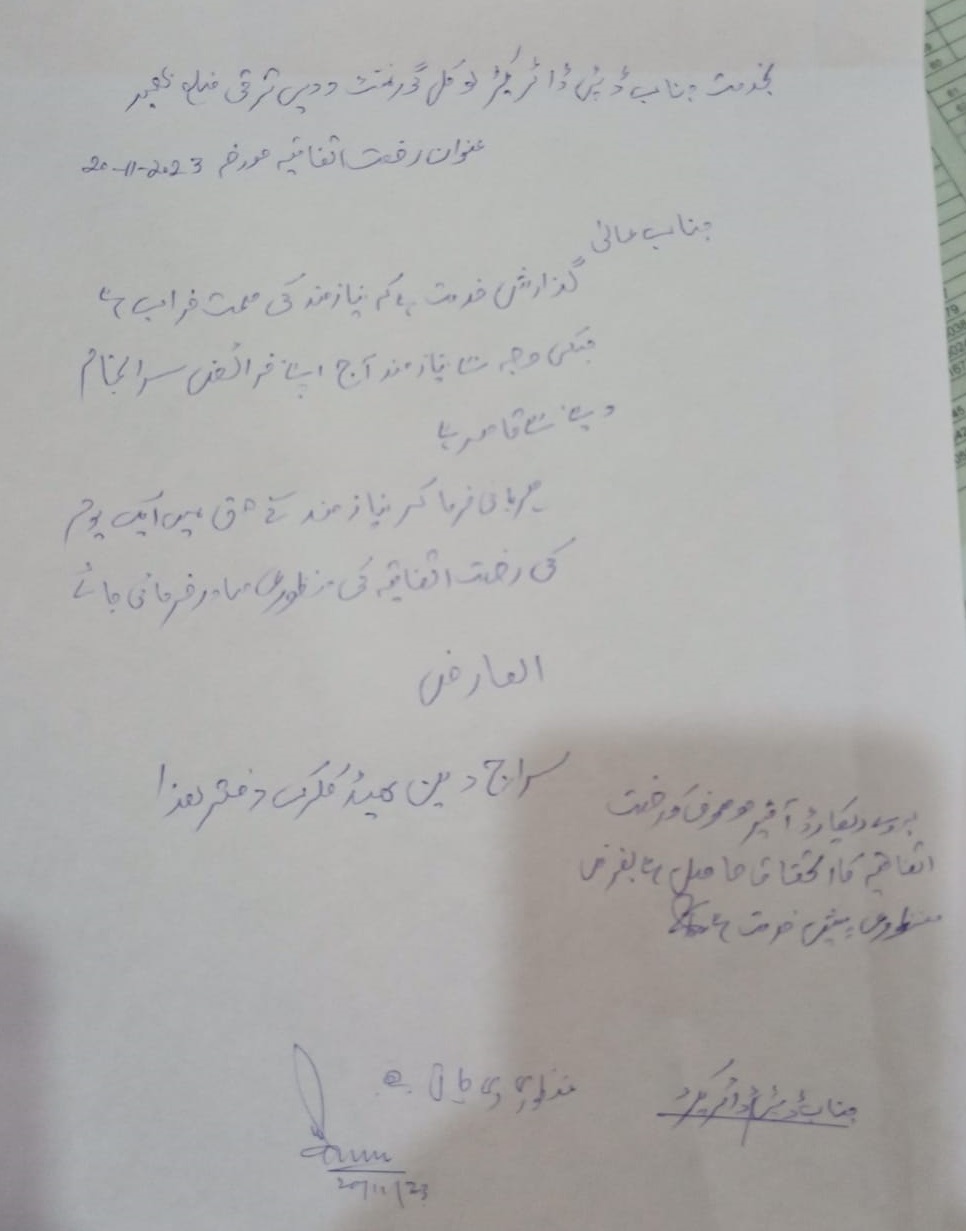 بخدمت جناب ڈپٹی ڈائریکٹر لوکل گورنمنٹ و دیہی ترقی ضلع بھمبر
عنوان رخصت اتفاقیہ مورخہ 20-11-2023
جناب عالی
گذارش خدمت ہے کہ نیازمند کی صحت خراب ہے
جسکی وجہ سے نیازمند آج اپنے فرائض سرانجام
دینے سے قاصر ہے
مہربانی فرما کر نیازمند کے حق میں ایک یوم
کی رخصت اتفاقیہ کی منظوری صادر فرمائی جائے
العارض
سراج دین ہیڈ کلرک دفتر ھذا
بروئے ریکارڈ آفس موصوف کو رخصت
اتفاقیہ کا استحقاق حاصل ہے بغرض
منظوری پیش خدمت ہے
جناب ڈپٹی ڈائریکٹر
منظوری دی جاتی ہے
20/11/23